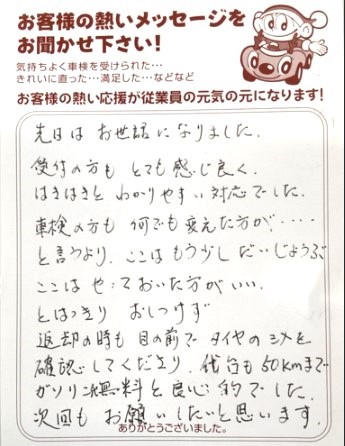 お客様の熱いメッセージを
お聞かせ下さい!
気持ちよく車検を受けられた…
きれいに直った…満足した…などなど
お客様の熱い応援が従業員の元気の元になります!
先日は お世話になりました。
受付の方も とても感じ良く、
はきはきと わかりやすい対応でした。
車検の方も 何でも変えた方が・・・・
と言うより、ここは もう少し だいじょうぶ
ここは やっておいた方がいい。
とはっきり おしつけず
返却の時も 目の前で タイヤのシメを
確認してくださり、代台も50kmまで
ガソリン無料と良心的でした。
次回も お願いしたいと思います。
ありがとうございました。